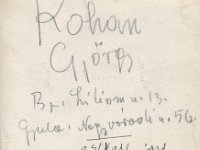 Kohan
György
Bp., Liliom u. 13.
Gyula, Nagyváradi u. 56.